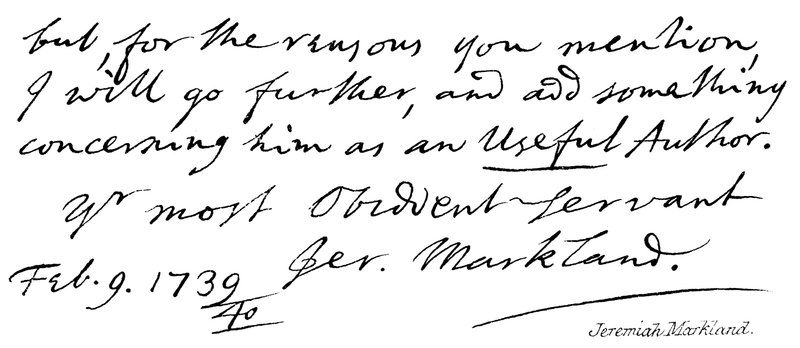 but, for the reasons you mention,
I will go further, and add something
concerning him as an Useful Author.
Yr most Obedient Servant
Jer. Markland.
Feb. 9. 1739
40
Jeremiah Markland.